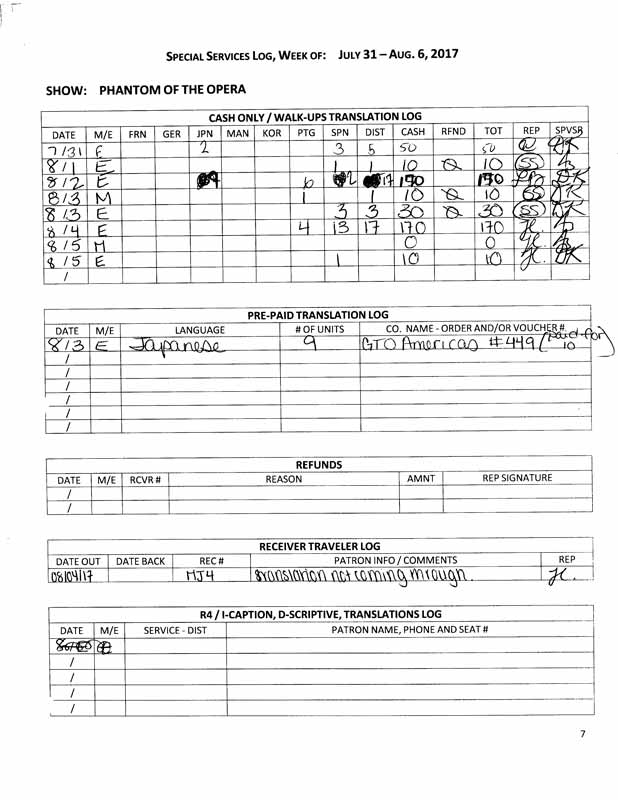 SPECIAL SERVICES LOG, WEEK OF: JULY 31 – AUG. 6, 2017
SHOW: PHANTOM OF THE OPERA
CASH ONLY / WALK-UPS TRANSLATION LOG
DATE M/E FRN GER JPN MAN KOR PTG SPN DIST CASH RFND TOT REP SPVSR
7/31 E 2 3 5 50 50
8/1 E 1 1 10 0 10 SS
8/2 E 6 2 17 170 170
8/3 M 1 1 10 0 10 SS
8/3 E 3 3 30 0 30 SS
8/4 E 4 13 17 170 170
8/5 M 0 0
8/5 E 1 10 10
/
PRE-PAID TRANSLATION LOG
DATE M/E LANGUAGE # OF UNITS CO. NAME - ORDER AND/OR VOUCHER #
8/3 E Japanese 9 GTO Americas #449 (paid for 10)
/
/
/
/
/
/
REFUNDS
DATE M/E RCVR # REASON AMNT REP SIGNATURE
/
/
RECEIVER TRAVELER LOG
DATE OUT DATE BACK REC # PATRON INFO / COMMENTS REP
08/04/17 MJ4 translation not coming through.
R4 / I-CAPTION, D-SCRIPTIVE, TRANSLATIONS LOG
DATE M/E SERVICE - DIST PATRON NAME, PHONE AND SEAT #
/
/
/
/
7